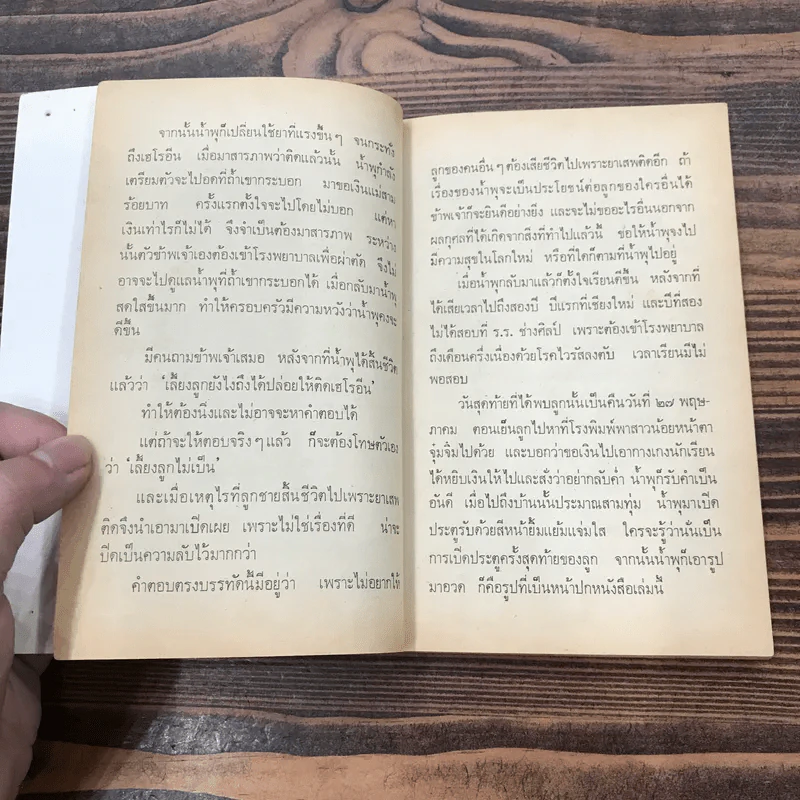 จากนั้นน้ำพุก็เปลี่ยนใช้ยาที่แรงขึ้นๆ จนกระทั่ง
ถึงเฮโรอีน เมื่อมาสารภาพว่าติดแล้วนั้น น้ำพุกำลัง
เตรียมตัวจะไปอดที่ถ้ำเขากระบอก มาขอเงินแม่สาม
ร้อยบาท ครั้งแรกตั้งใจจะไปโดยไม่บอก แต่หา
เงินเท่าไรก็ไม่ได้ จึงจำเป็นต้องมาสารภาพ ระหว่าง
นั้นตัวข้าพเจ้าเองต้องเข้าโรงพยาบาลเพื่อผ่าตัด จึงไม่
อาจจะไปดูแลน้ำพุที่ถ้ำเขากระบอกได้ เมื่อกลับมาน้ำพุ
สดใสขึ้นมาก ทำให้ครอบครัวมีความหวังว่าน้ำพุคงจะ
ดีขึ้น
มีคนถามข้าพเจ้าเสมอ หลังจากที่น้ำพุได้สิ้นชีวิต
แล้วว่า ‘เลี้ยงลูกยังไงถึงได้ปล่อยให้ติดเฮโรอีน’
ทำให้ต้องนิ่งและไม่อาจจะหาคำตอบได้
แต่ถ้าจะให้ตอบจริงๆแล้ว ก็จะต้องโทษตัวเอง
ว่า ‘เลี้ยงลูกไม่เป็น’
และเมื่อเหตุไรที่ลูกชายสิ้นชีวิตไปเพราะยาเสพ
ติดจึงนำเอามาเปิดเผย เพราะไม่ใช่เรื่องที่ดี น่าจะ
ปิดเป็นความลับไว้มากกว่า
คำตอบตรงบรรทัดนี้มีอยู่ว่า เพราะไม่อยากให้
ลูกของคนอื่นๆต้องเสียชีวิตไปเพราะยาเสพติดอีก ถ้า
เรื่องของน้ำพุจะเป็นประโยชน์ต่อลูกของใครอื่นได้
ข้าพเจ้าก็จะยินดีอย่างยิ่ง และจะไม่ขออะไรอื่นนอกจาก
ผลกุศลที่ได้เกิดจากสิ่งที่ทำไปแล้วนี้ ขอให้น้ำพุจงไป
มีความสุขในโลกใหม่ หรือที่ใดก็ตามที่น้ำพุไปอยู่
เมื่อน้ำพุกลับมาแล้วก็ตั้งใจเรียนดีขึ้น หลังจากที่
ได้เสียเวลาไปถึงสองปี ปีแรกที่เชียงใหม่ และปีที่สอง
ไม่ได้สอบที่ ร.ร. ช่างศิลป์ เพราะต้องเข้าโรงพยาบาล
ถึงเดือนครึ่งเนื่องด้วยโรคไวรัสลงตับ เวลาเรียนมีไม่
พอสอบ
วันสุดท้ายที่ได้พบลูกนั้นเป็นคืนวันที่ ๒๗ พฤษ-
ภาคม ตอนเย็นลูกไปหาที่โรงพิมพ์พาสาวน้อยหน้าตา
จุ๋มจิ๋มไปด้วย และบอกว่าขอเงินไปเอากางเกงนักเรียน
ได้หยิบเงินให้ไปและสั่งว่าอย่ากลับค่ำ น้ำพุก็รับคำเป็น
อันดี เมื่อไปถึงบ้านนั้นประมาณสามทุ่ม น้ำพุมาเปิด
ประตูรับด้วยสีหน้ายิ้มแย้มแจ่มใส ใครจะรู้ว่านั่นเป็น
การเปิดประตูครั้งสุดท้ายของลูก จากนั้นน้ำพุก็เอารูป
มาอวด ก็คือรูปที่เป็นหน้าปกหนังสือเล่มนี้